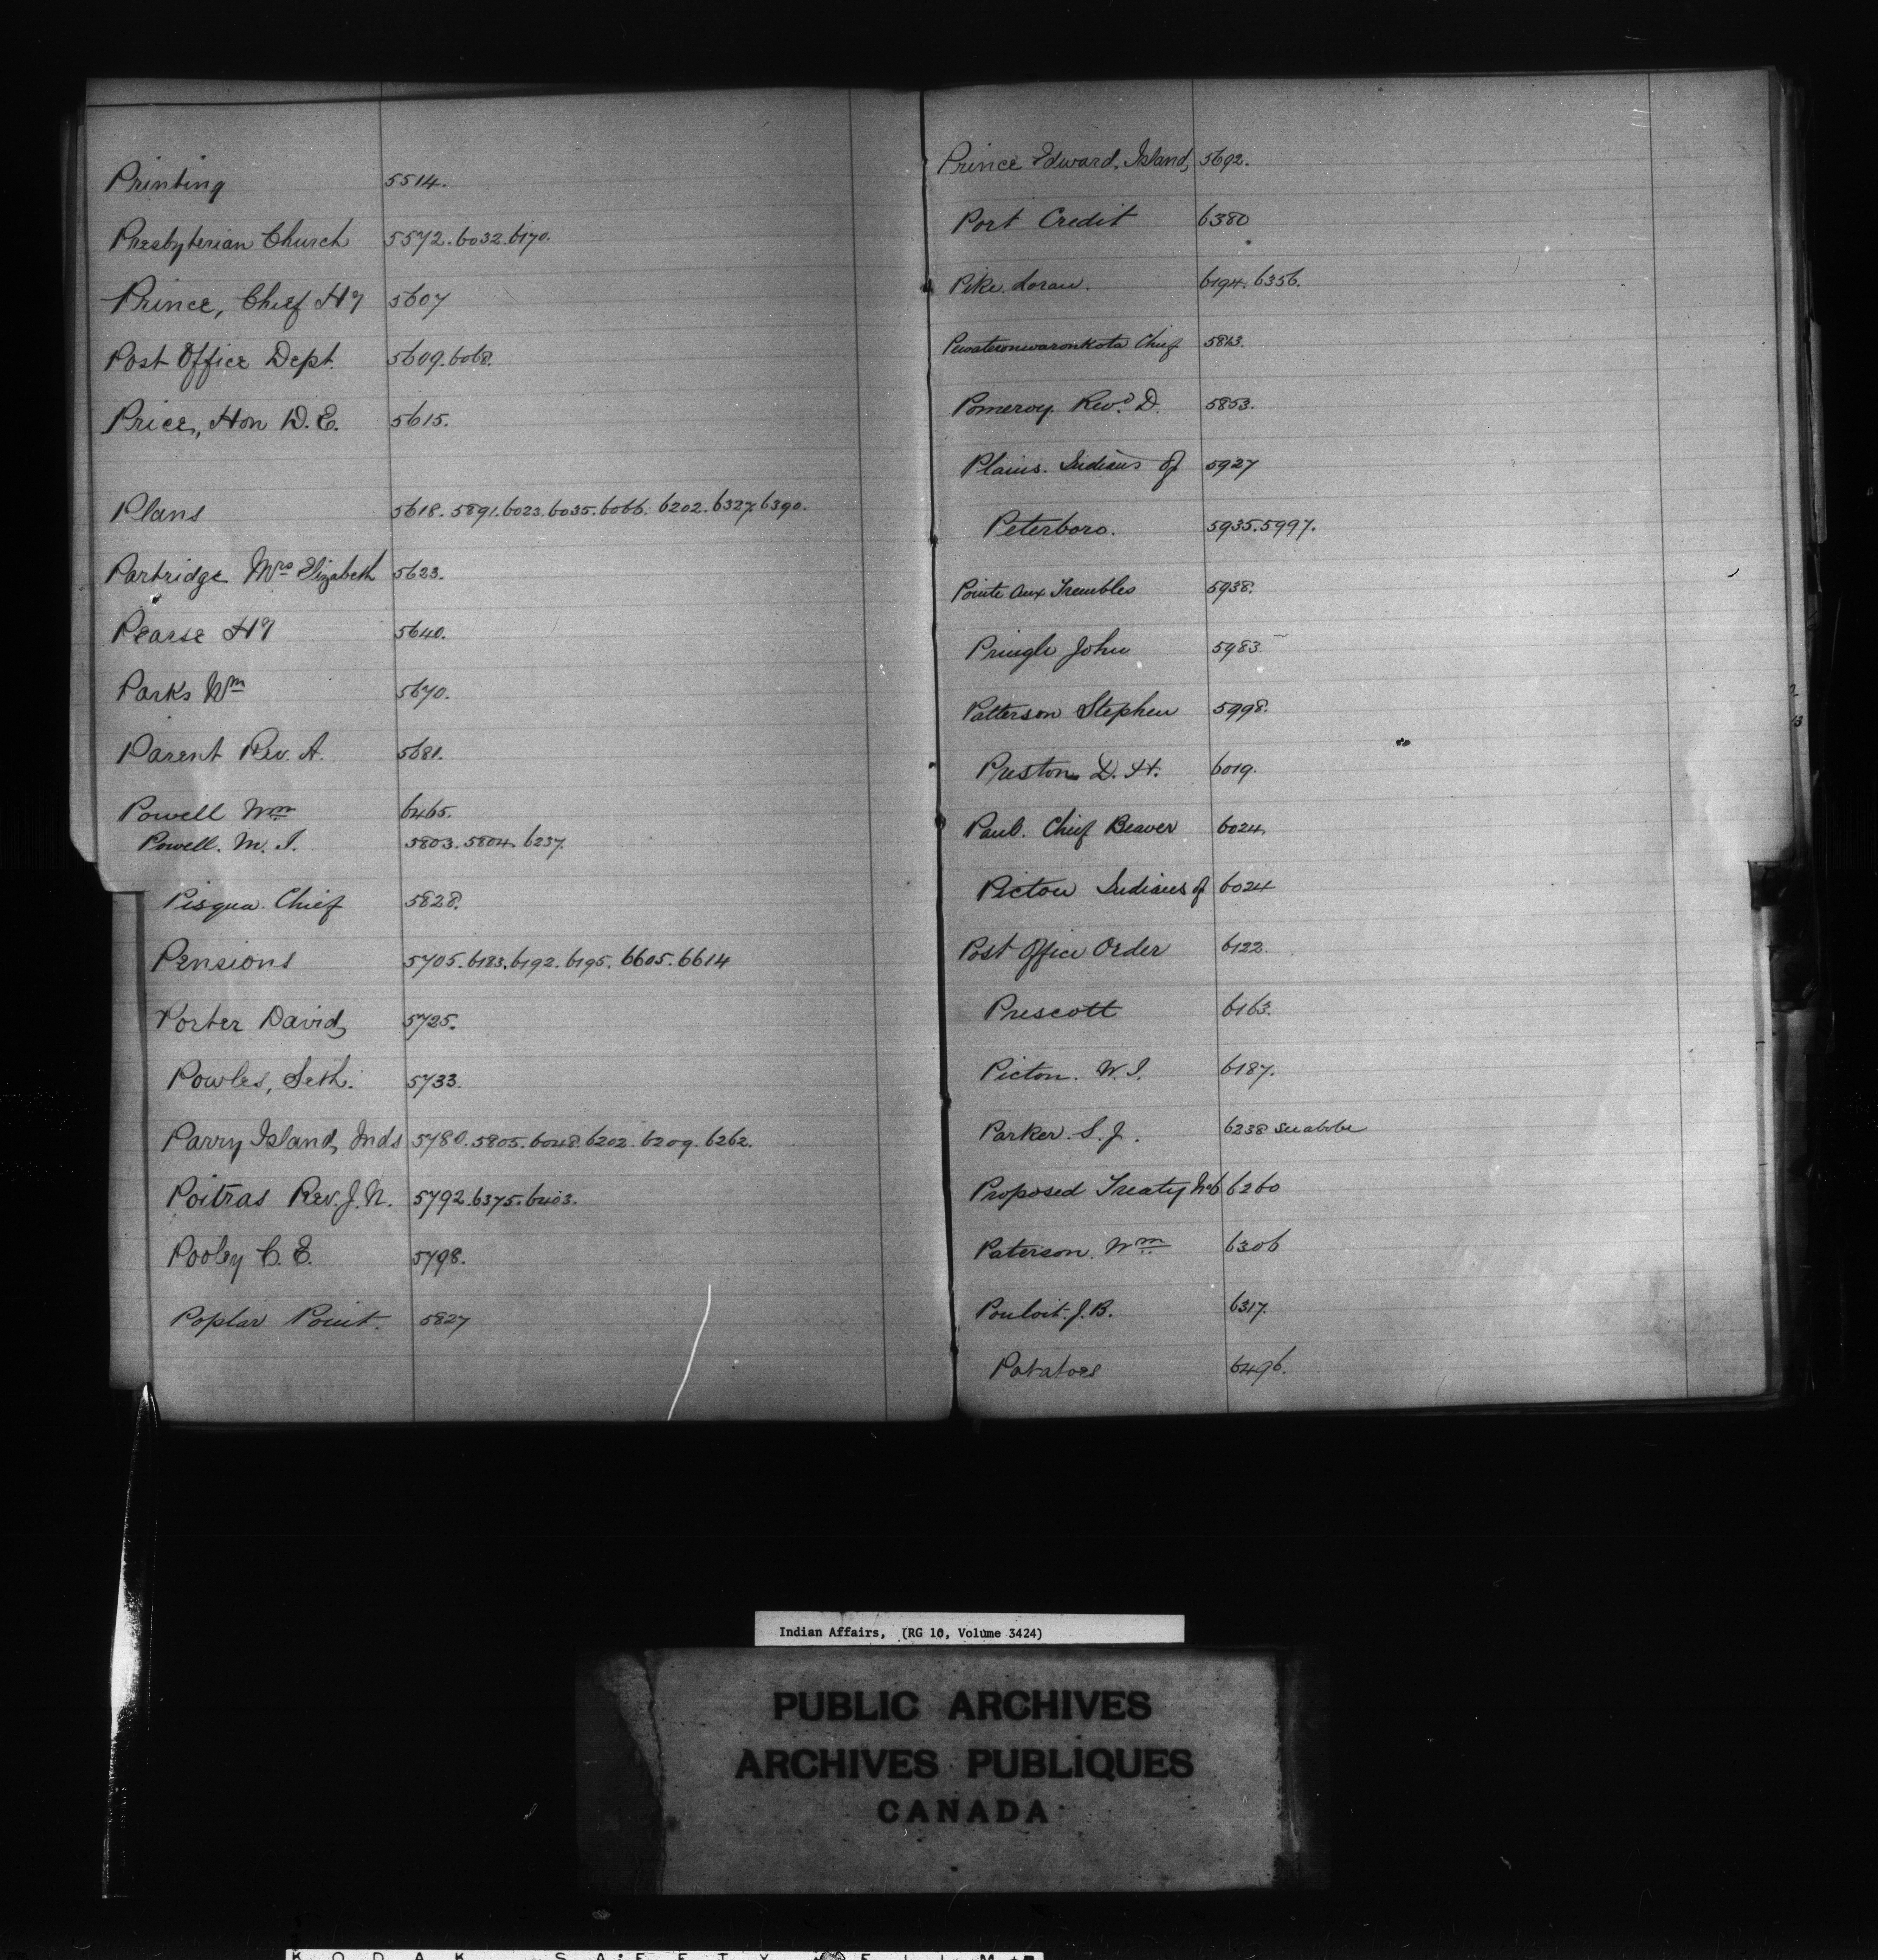 Printing 5514.
Presbyterian Church 5572.6032.6170.
Prince, Chief Hy 5607
Post Office Dept. 5609.6068.
Price, Hon D.E. 5615.
Plans 5618.5891.6023.6035.6066.6202.6327.6390.
Partridge Mrs Elizabeth 5623.
Pearse Hy 5640.
Parks Wm 5670.
Parent Rev. A. 5681.
Powell Wm 6465.
Powell. M. I. 5803.5804.6237.
Pisqua Chief 5828.
Pensions 5705.6183.6192.6195.6605.6614
Porter David, 5725.
Powles, Seth. 5733.
Parry Island, Inds 5780.5805.6048.6202.6209.6262.
Poitras Rev. J. N. 5792.6375.6403.
Pooley C. E. 5798.
Poplar Point. 5827
Prince Edward, Island, 5692.
Port Credit 6380
Pike. Loran. 6194.6356.
Chief 5813.
Pomeroy. Revd. D. 5853.
Plains. Indians of 5927
Peterboro. 5935.5997.
Pointe Aux Trembles 5938.
Pringle John 5983
Patterson Stephen 5998.
Preston D. H. 6019.
Paul. Chief Beaver 6024.
Pictou Indians of 6024
Post Office Order 6122.
Prescott 6163.
Picton. W. I. 6187.
Parker. S. J. 6238 See above
Proposed Treaty No 6 6260
Paterson. Wm 6306
Pouloit. J. B. 6317.
Potatoes 6496.
Indian Affairs, (RG 10, Volume 3424)
PUBLIC ARCHIVES
ARCHIVES PUBLIQUES
CANADA
KODAK SAFETY FILM